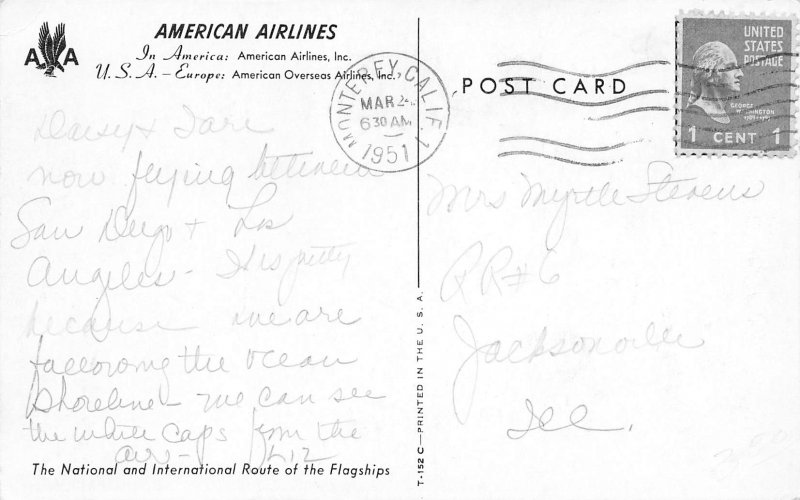 AMERICAN AIRLINES
In America: American Airlines, Inc.
U.S.A. – Europe: American Overseas Airlines, Inc.
AA
MONTEREY, CALIF. 1
MAR 2
6 30 AM
1951
POST CARD
UNITED
STATES
POSTAGE
GEORGE
WASHINGTON
1 CENT 1
Daisy +
now flying between
San Diego + Los
Angeles - It is pretty
because we are
following the ocean
shoreline - we can see
the white caps from the
air -
Mrs Myrtle Stevens
RR#6
Jacksonville
Ill.
T-152 C—PRINTED IN THE U. S. A.
The National and International Route of the Flagships